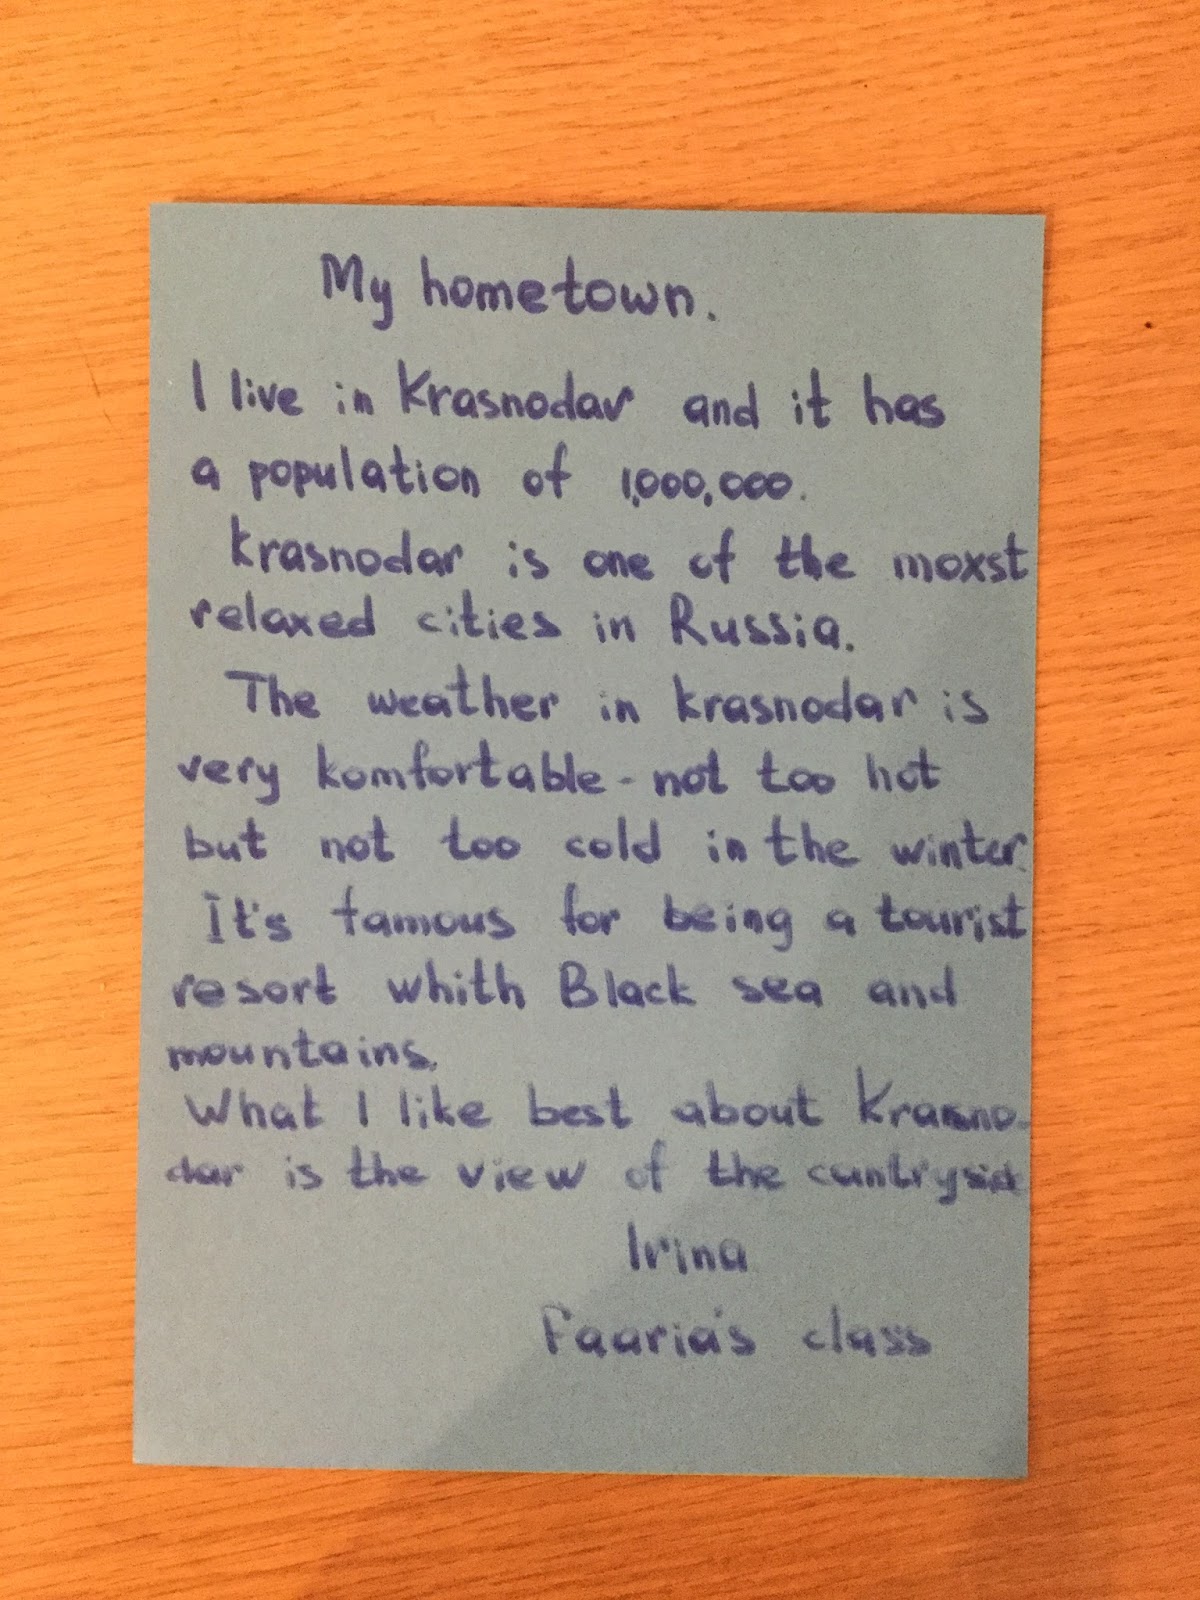 My hometown.
I live in Krasnodar and it has
a population of 1,000,000.
Krasnodar is one of the moxst
relaxed cities in Russia.
The weather in krasnodar is
very komfortable - not too hot
but not too cold in the winter.
It's famous for being a tourist
resort whith Black sea and
mountains.
What I like best about Krasno-
dar is the view of the cuntryside
Irina
Faaria's class